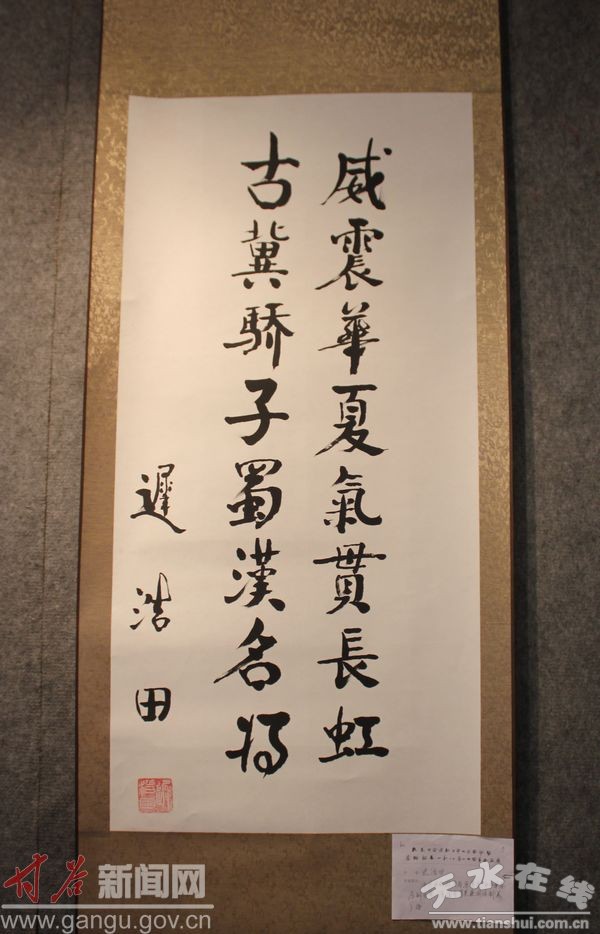 威震華夏氣貫長虹
古冀驕子蜀漢名将
遲浩田
甘谷新闻网
www.gangu.gov.cn
天水在线
www.tianshui.com.cn